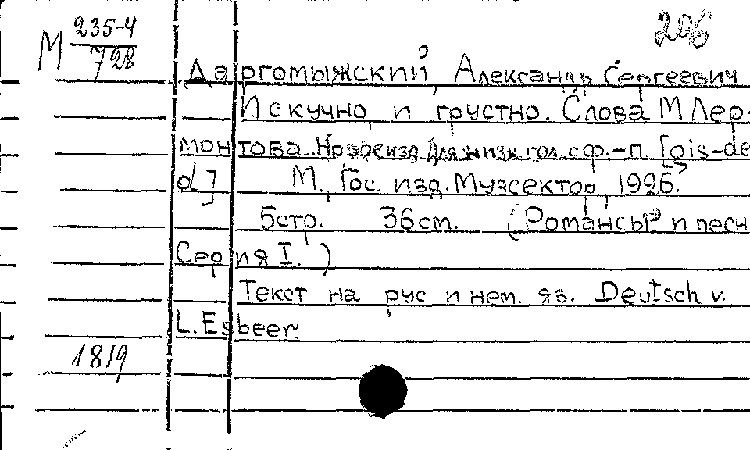 206
М 235-4
728
Даргомыжский, Александр Сергеевич
И скучно и грустно. Слова М Лер-
монтова. Новое изд. Для низк гол. с ф.-п. [gis-de
d]
М., Гос. изд. Музсектор, 1926.
5стр. 36см. (Романсы и песн
Серия I.)
Текст на рус и нем. яз. Deutsch v.
L. Esbeer.
1819